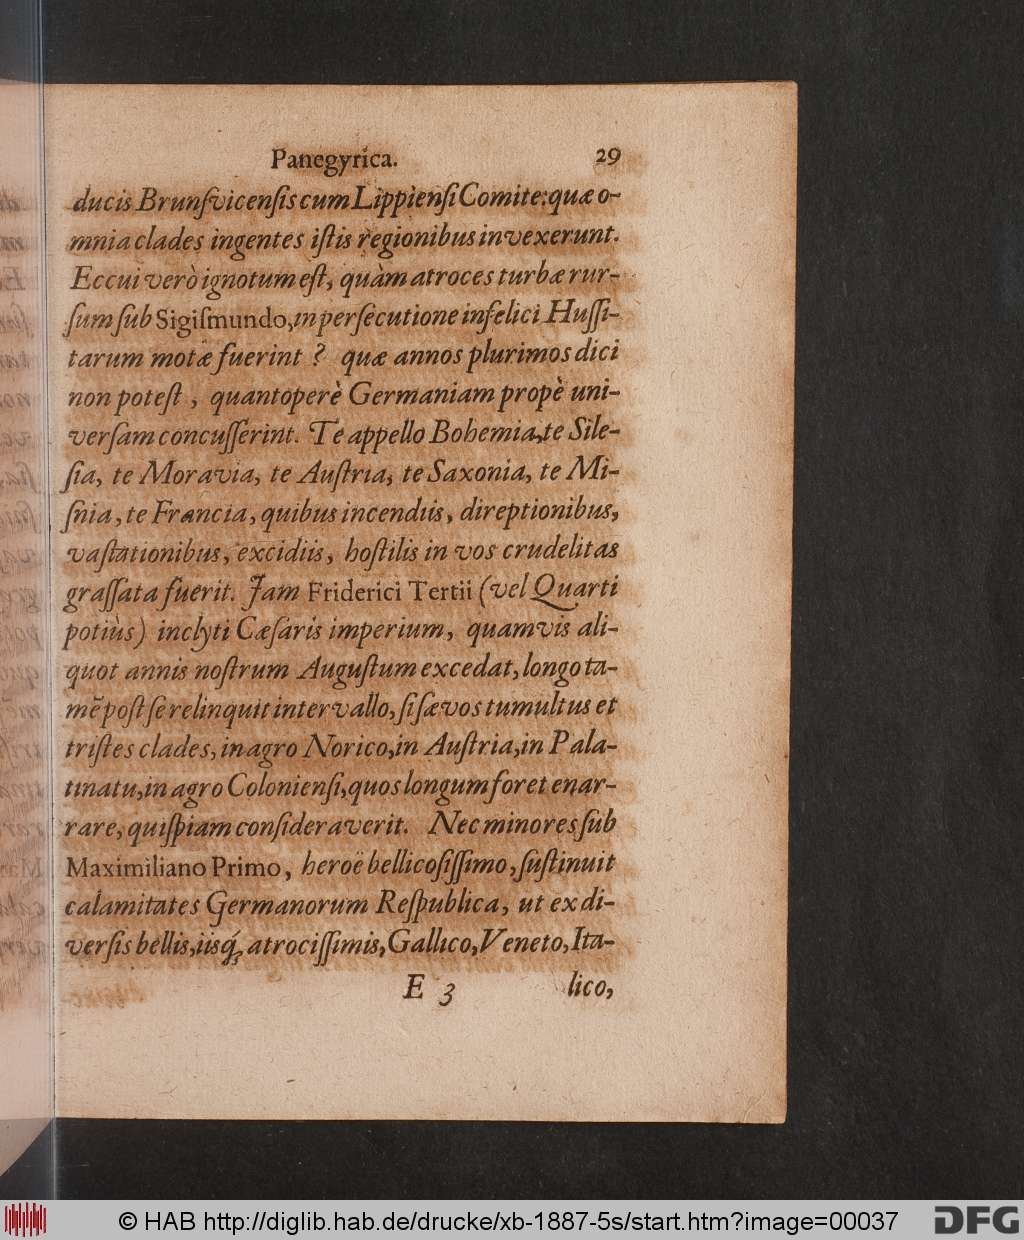 Panegyrica. 29
ducis Brunſvicenſis cum Lippienſi Comite: quæ o-
mnia clades ingentes iſtis regionibus invexerunt.
Eccui verò ignotum eſt, quàm atroces turbæ rur-
ſum ſub Sigiſmundo, in perſecutione infelici Huſſi-
tarum motæ fuerint ? quæ annos plurimos dici
non poteſt, quantoperè Germaniam propè uni-
verſam concuſſerint. Te appello Bohemia, te Sile-
ſia, te Moravia, te Auſtria, te Saxonia, te Mi-
ſnia, te Francia, quibus incendiis, direptionibus,
vaſtationibus, excidiis, hoſtilis in vos crudelitas
graſſata fuerit. Jam Friderici Tertii (vel Quarti
potiùs) inclyti Cæſaris imperium, quamvis ali-
quot annis noſtrum Auguſtum excedat, longo ta-
mẽ poſt ſe relinquit intervallo, ſi ſævos tumultus et
triſtes clades, in agro Norico, in Auſtria, in Pala-
tinatu, in agro Colonienſi, quos longum foret enar-
rare, quiſpiam conſideraverit. Nec minores ſub
Maximiliano Primo, heroë bellicoſiſſimo, ſuſtinuit
calamitates Germanorum Reſpublica, ut ex di-
verſis bellis, iisq́; atrociſſimis, Gallico, Veneto, Ita-
E 3 lico,
© HAB http://diglib.hab.de/drucke/xb-1887-5s/start.htm?image=00037 DFG